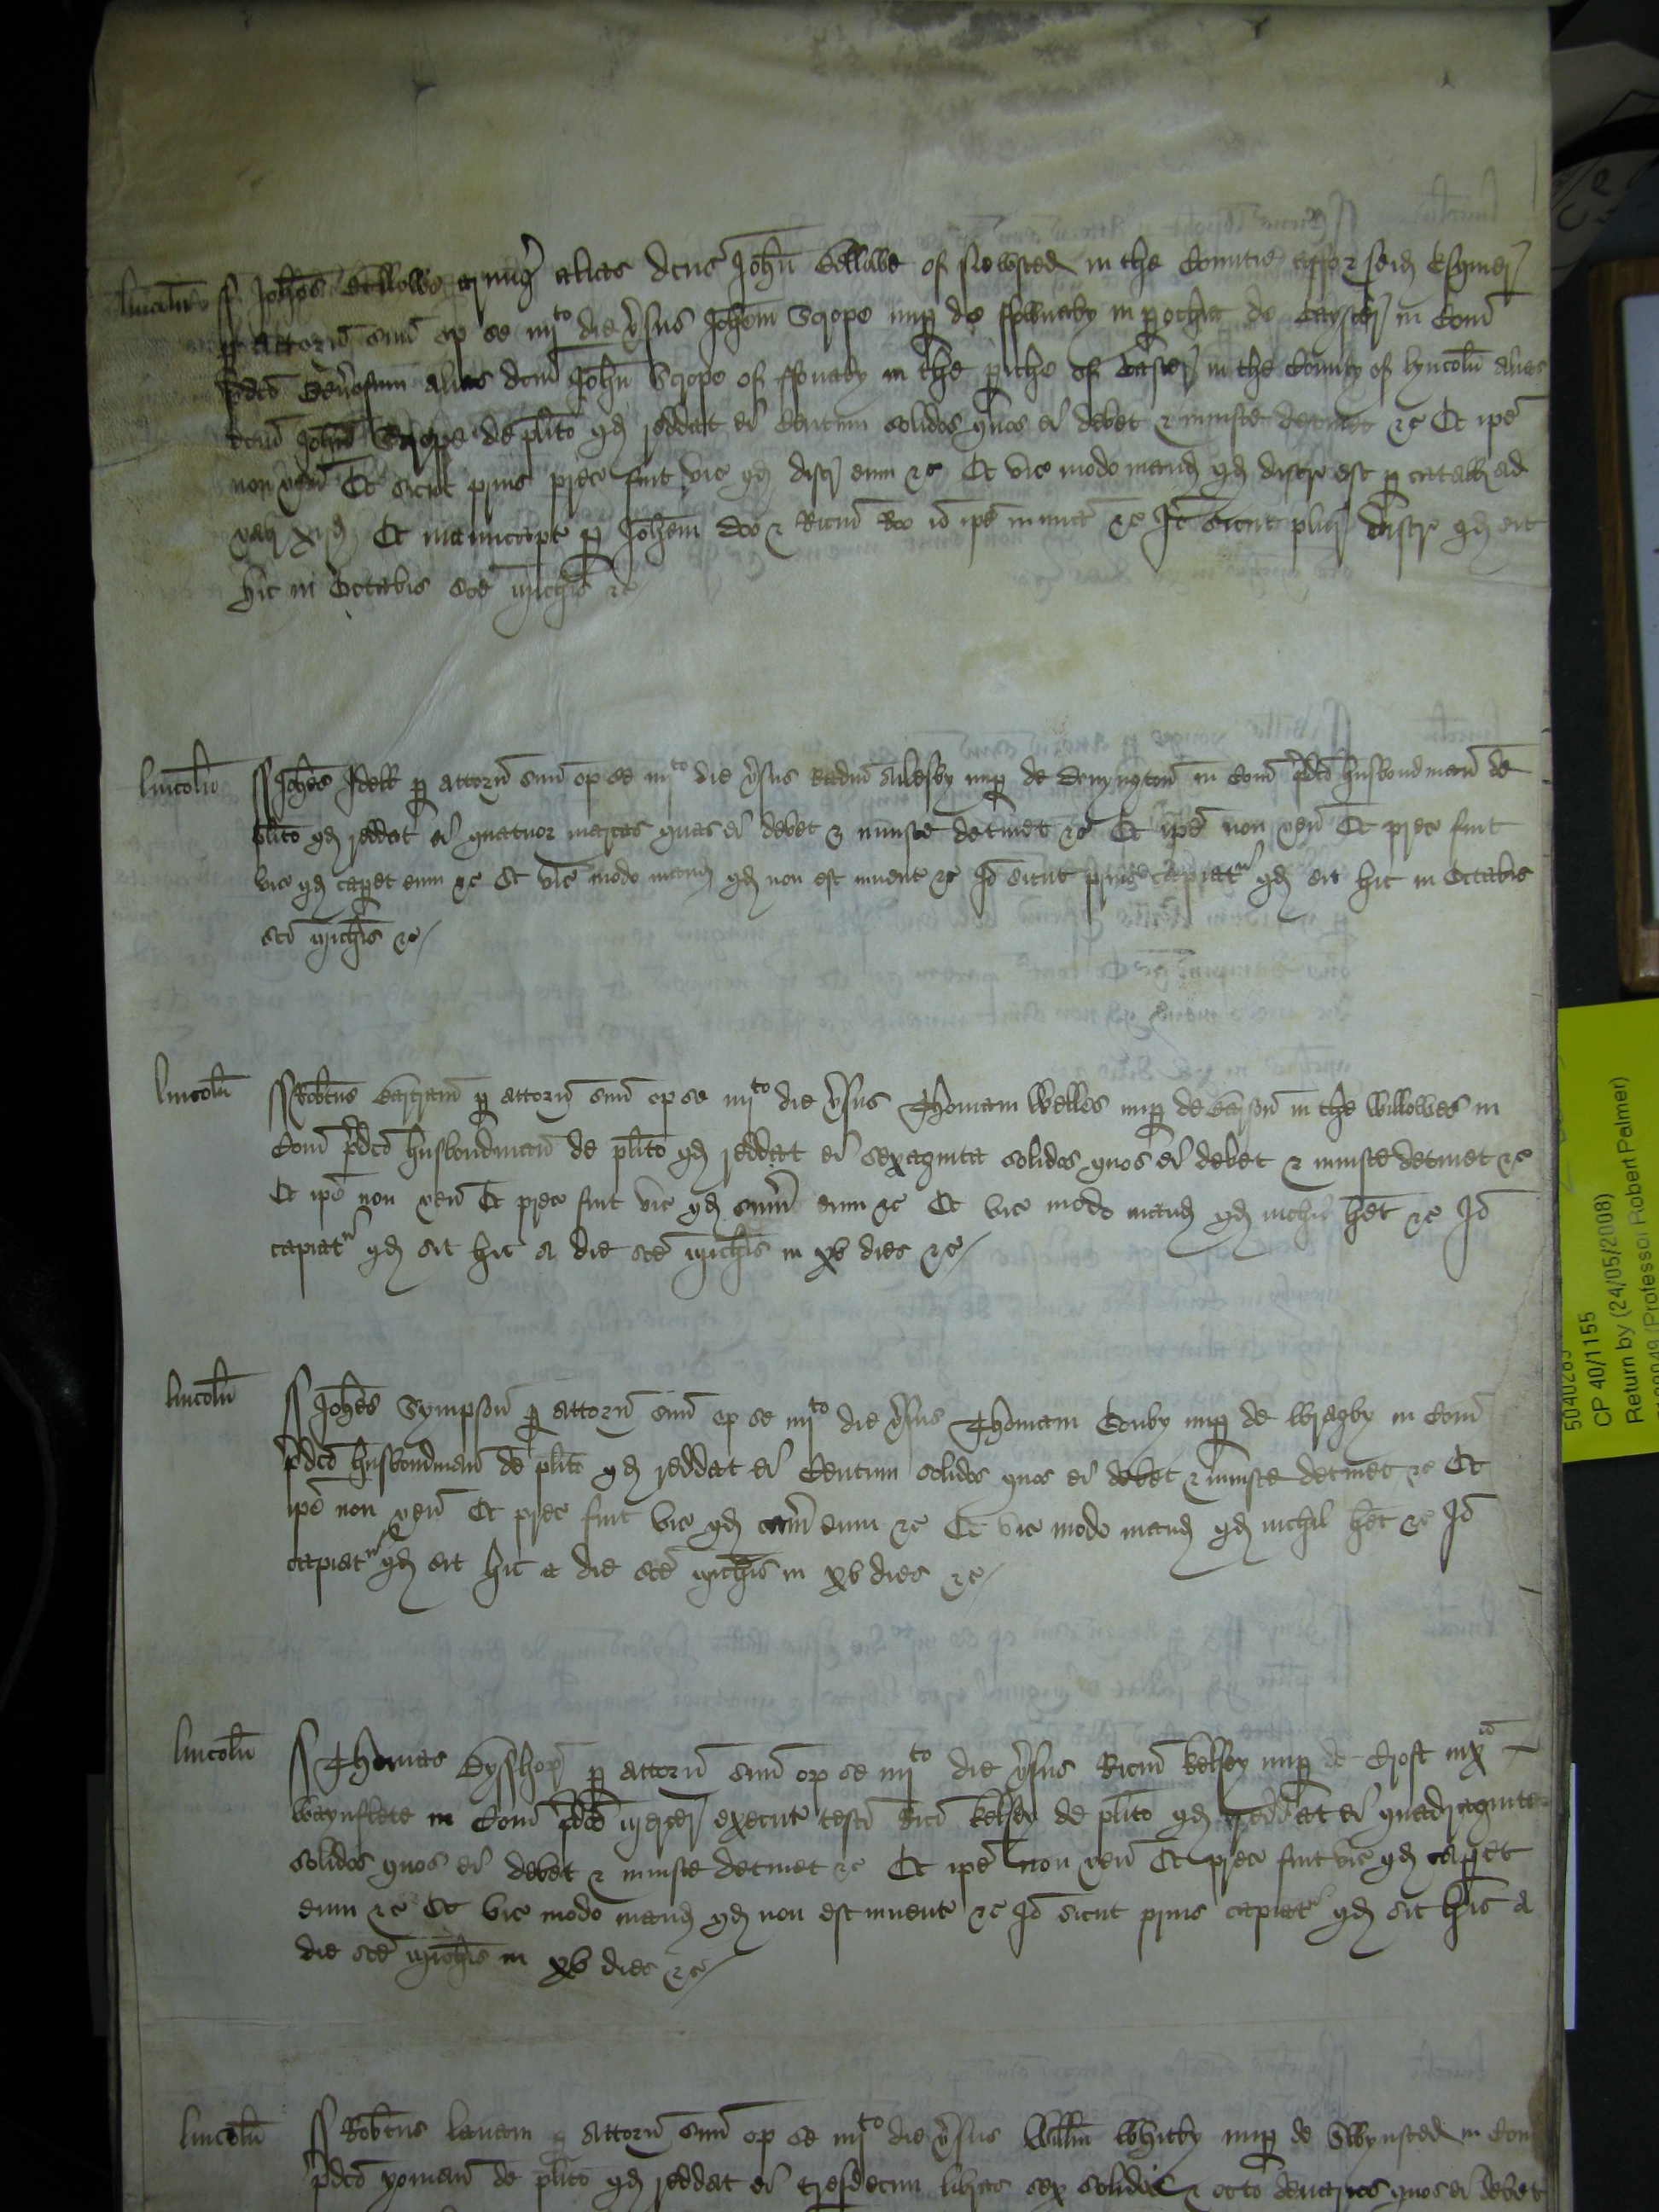 lincoln Johes Bellowe armig alias dcus John Bellowe of newsted in the Countie afforseid Esquier
p attorn suu op se iiijto die vsus Johem Scrope nup de ffownaby in pochia de Cayster in Com
pdco Genosum alias dcm John Scrope of ffonaby in the pishe of Caster in the County of lyncoln alias
dcm Johem Scrope de plito qd reddat ei Centum solidos quos ei debet & iniuste detinet &c Et ipe
non ven Et sicut prius prec fuit vic qd distr eum &c Et vic modo mand qd distr est p catall ad
val Et manucapt p Johem doo & Ricm Roo io ipe in mia &c Io sicut plur distr qd sit
hic in Octabis sci Michis &c
lincoln Johes p attorn suu op se iiijto die vsus Radm nup de Donyngton in Com pdco husbondman de
plito qd reddat ei quatuor marcas quas ei debet & iniuste detinet &c Et ipe non ven Et prec fuit
vic qd capet eum &c Et vic modo mand qd non est invent &c Io sicut prius capiatr qd sit hic in Octabis
sci Michis &c
lincoln Robtus Bartram p attorn suu op se iiijto die vsus Thomam Welles nup de in the Willowes in
Com pdco husbondman de plito qd reddat ei sexaginta solidos quos ei debet & iniuste detinet &c
Et ipe non ven Et prec fuit vic qd sum eum &c Et vic modo mand qd nichil het &c Io
capiatr qd sit hic a die sci Michis in xv dies &c
lincoln Johes Sympson p attorn suu op se iiijto die vsus Thomam Conby nup de Wragby in Com
pdco husbondman de plito qd reddat ei Centum solidos quos ei debet & iniuste detinet &c Et
ipe non ven Et prec fuit vic qd sum eum &c Et vic modo mand qd nichil het &c Io
capiatr qd sit hic a die sci Michis in xv dies &c
lincoln Thomas Bysshop p attorn suu op se iiijto die vsus Ricm Kelsey nup de Croft
Waynflete in Com pdco mercer execut testi Kelsey de plito qd reddat ei quadraginta
solidos quos ei debet & iniuste detinet &c Et ipe non ven Et prec fuit vic qd capet
eum &c Et vic modo mand qd non est invent &c Io sicut prius capiatr qd sit hic a
die sci Michis in xv dies &c
lincoln Robtus p attorn suu op se iiijto die vsus Willm Whitby nup de Swynsted in Com
pdco yoman de plito qd reddat ei tresdecim libras sex solidos & octo denarios quos ei debet
CP 40/1155
Return by (24/05/2008)
(Professor Robert Palmer)